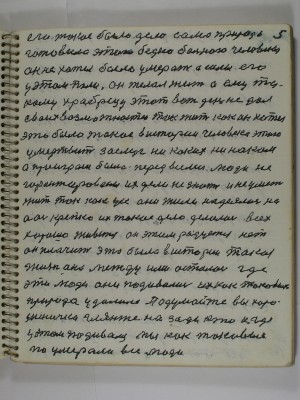 его такое было дело само природа 5
готовело этого бедно больного человека
он не хотел болел умерать а силы его
у этом пали, он желал жит а ему та-
кому храбрецу этот вот день не дал
своих возможностей так жит как он хотел
это было такое в истории человека этого
умертвит заслуг ни каких ни наком
а проиграш было перед всеми люди не
гарантированы их дело не знат и не умет
жит так как уже они жили надеялся на
а их крепко их такое дело делал всех
хорошо живут он этим радуется нет
он плачит это было в истории такая
жизн она между ими осталос где
эти люди они подивалис их как таковых
природа удалила Подумайте вы хоро-
шеничко гляньте на зади кто и где
у этом подивалис мы как таковые
по умерали все люди